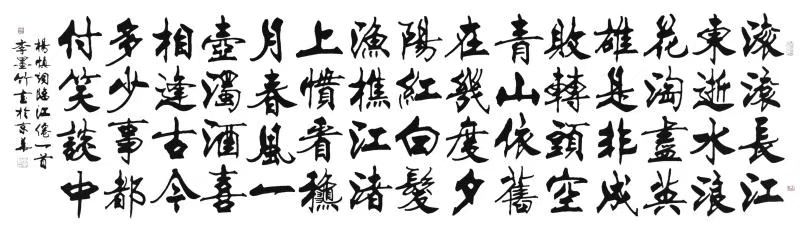 滾滾長江
東逝水浪
花淘盡英
雄是非成
敗轉頭空
青山依舊
在幾度夕
陽紅白髮
漁樵江渚
上慣看穐
月春風一
壺濁酒喜
相逢古今
多少事都
付笑談中
楊慎詞臨江僊一首
李墨竹書於京華